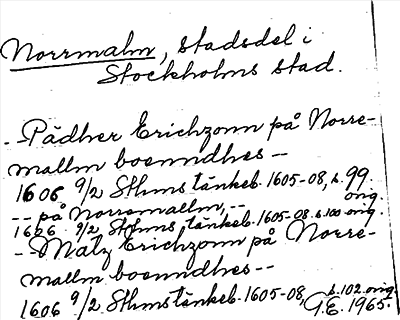 Norrmalm, stadsdel i
Stockholms stad.
-- Pädher Erichzonn på Norre-
mallm boenndhes --
1606 9/2 Sthms tänkeb. 1605-08, s. 99.
orig.
-- på Norremallm, --
1606 9/2 Sthms tänkeb. 1605-08 s. 100 orig.
-- Matz Erichzonn på Norre-
mallm boenndhes --
1606 9/2 Sthms tänkeb. 1605-08, s. 102. orig.
G.E. 1965.